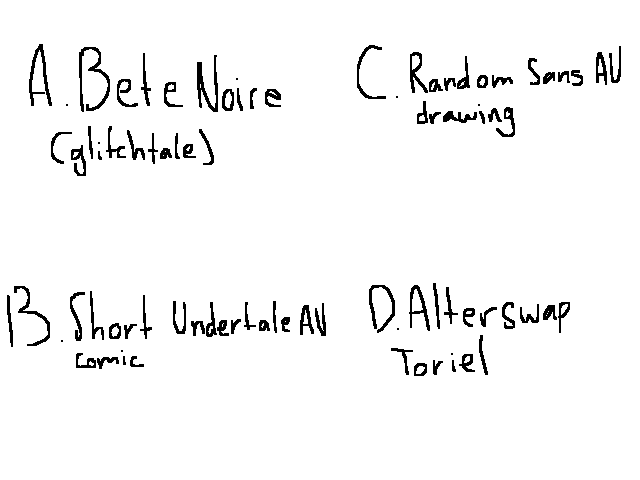 A. Bete Noire
(glitchtale)
C. Random Sans AU
drawing
B. Short Undertale AU
comic
D. Alterswap
Toriel